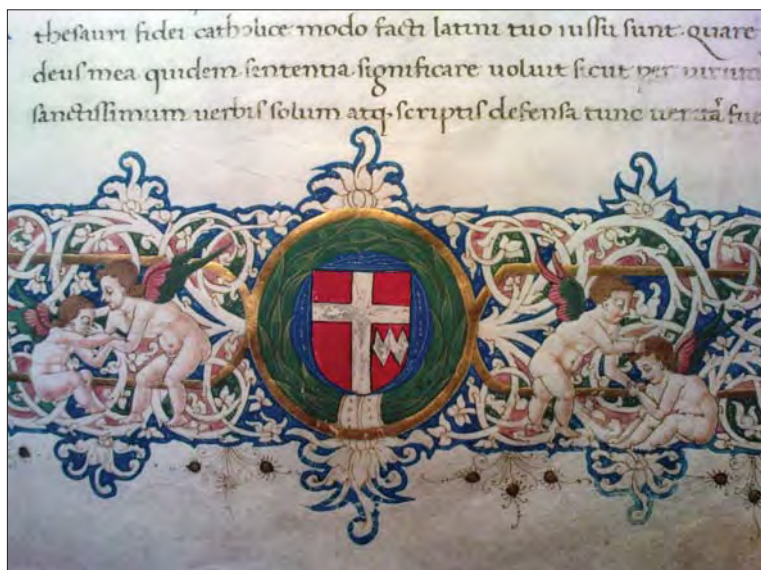 thesauri fidei catholice modo facti latini tuo iussu sunt. quare
deus mea quidem sententia significare uoluit sicut per uirum
sanctissimum uerbis solum atq. scriptis defensa tunc